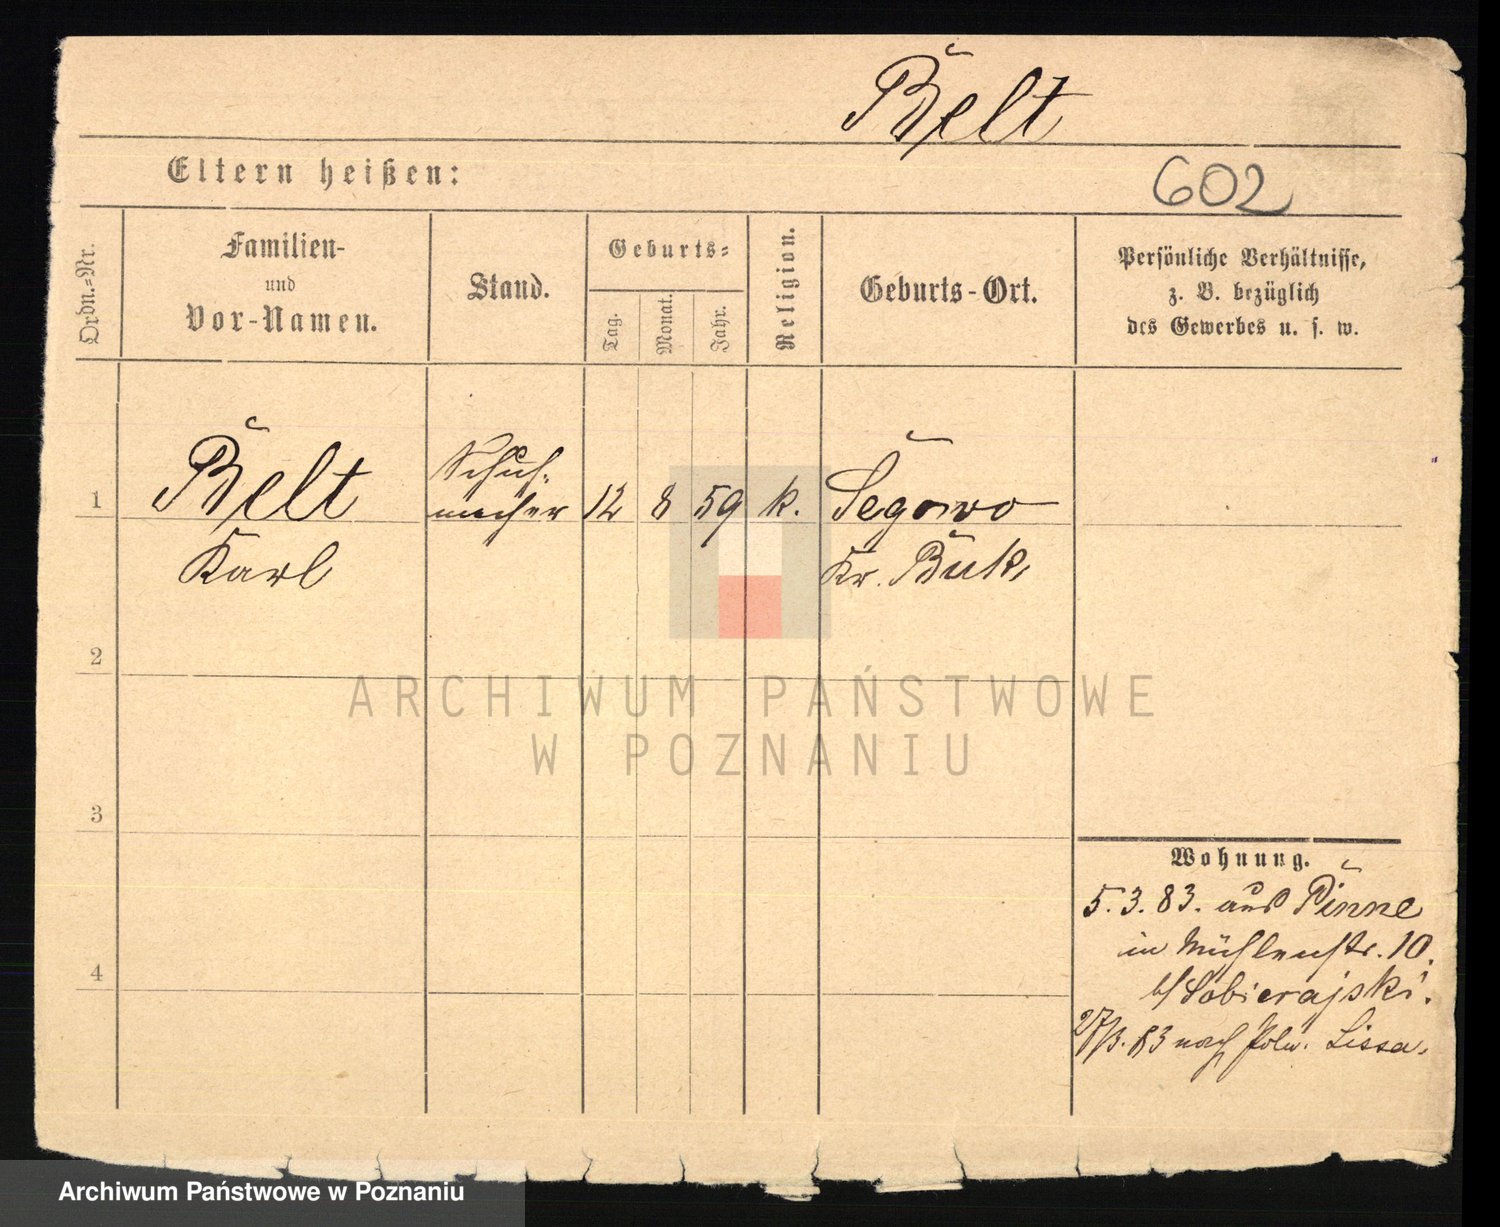 Belt
Eltern heißen:
602
Ordn.-Nr.
Familien-
und
Vor-Namen.
Stand.
Geburts-
Tag.
Monat.
Jahr.
Religion.
Geburts-Ort.
Persönliche Verhältnisse,
z. B. bezüglich
des Gewerbes u. s. w.
1
Belt
Karl
Schuh-
macher
12
8
59
k.
Segowo
Kr. Buk.
2
3
4
Wohnung.
5. 3. 83. aus Pinne
in Mühlenstr. 10.
b/ Sobierajski.
27/3. 83 nach Poln. Lissa.
ARCHIWUM PAŃSTWOWE
W POZNANIU
Archiwum Państwowe w Poznaniu